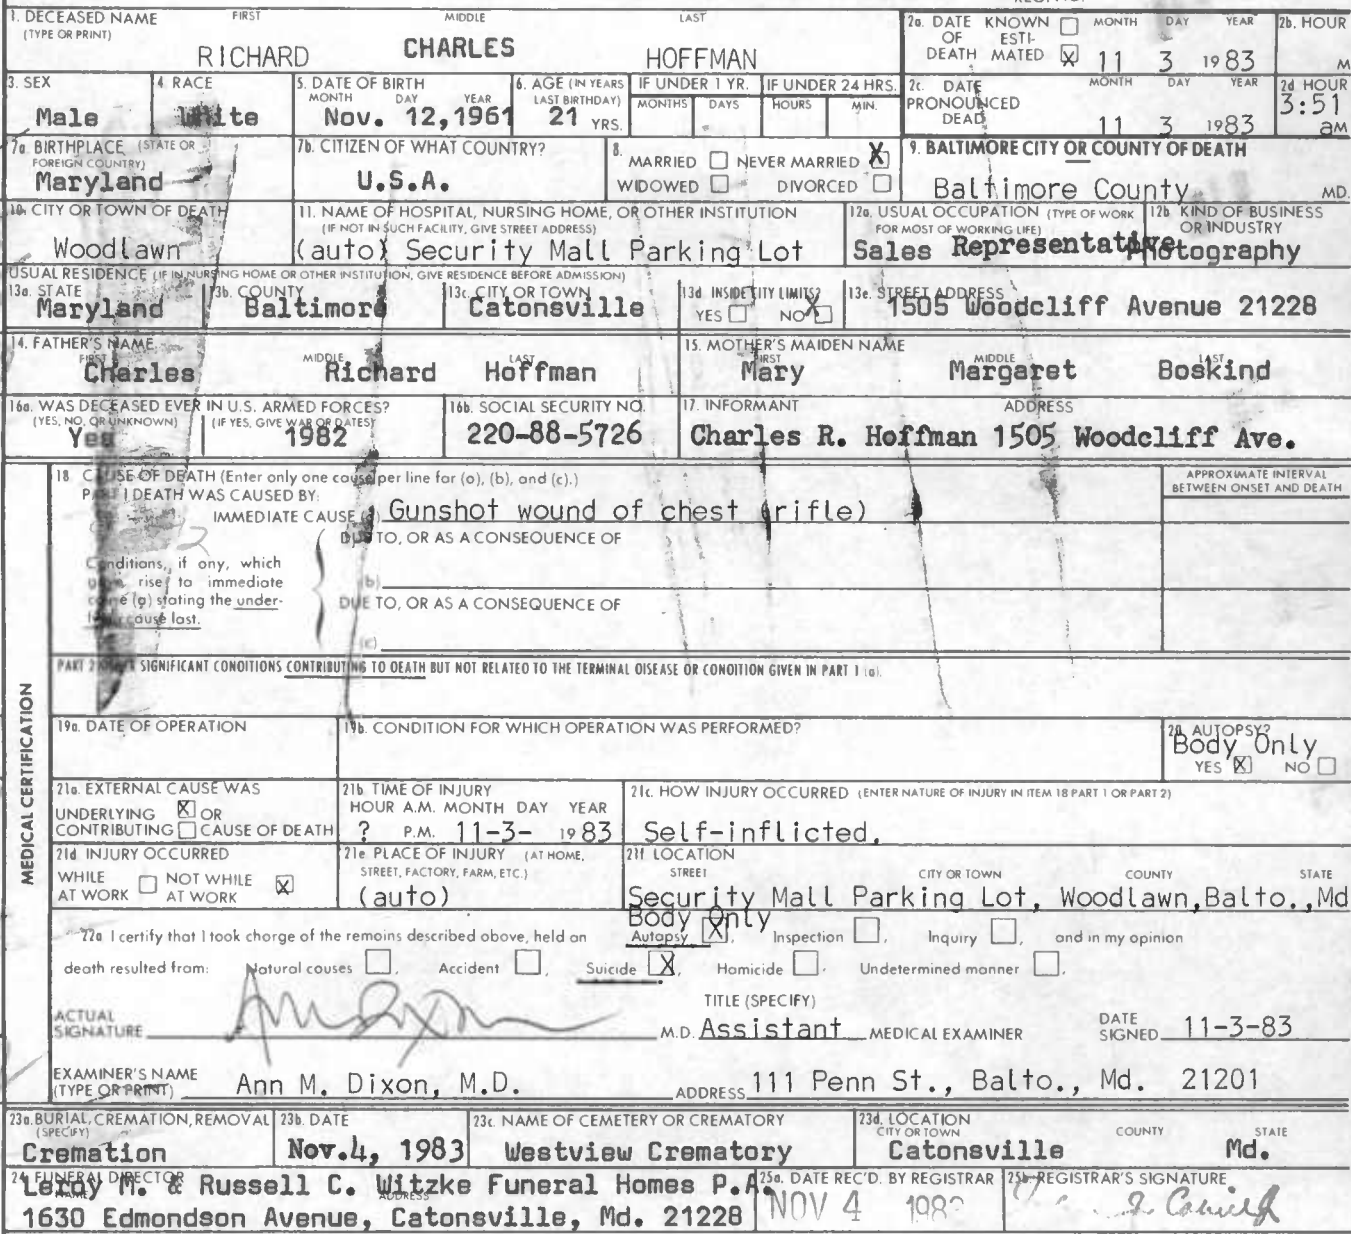 1. DECEASED NAME FIRST MIDDLE LAST
(TYPE OR PRINT)
RICHARD CHARLES HOFFMAN
2a. DATE OF DEATH KNOWN ☐ ESTIMATED ☒ MONTH DAY YEAR
11 3 1983
2b. HOUR
M
3. SEX
Male
4 RACE
White
5. DATE OF BIRTH
MONTH DAY YEAR
Nov. 12,1961
6. AGE (IN YEARS LAST BIRTHDAY)
21 YRS.
IF UNDER 1 YR.
MONTHS DAYS
IF UNDER 24 HRS.
HOURS MIN.
2c. DATE PRONOUNCED DEAD MONTH DAY YEAR
11 3 1983
2d HOUR
3:51
aM
7a. BIRTHPLACE (STATE OR FOREIGN COUNTRY)
Maryland
7b. CITIZEN OF WHAT COUNTRY?
U.S.A.
8. MARRIED ☐ NEVER MARRIED ☒
WIDOWED ☐ DIVORCED ☐
9. BALTIMORE CITY OR COUNTY OF DEATH
Baltimore County MD.
10. CITY OR TOWN OF DEATH
Woodlawn
11. NAME OF HOSPITAL, NURSING HOME, OR OTHER INSTITUTION
(IF NOT IN SUCH FACILITY, GIVE STREET ADDRESS)
(auto) Security Mall Parking Lot
12a. USUAL OCCUPATION (TYPE OF WORK FOR MOST OF WORKING LIFE)
Sales Representative
12b KIND OF BUSINESS OR INDUSTRY
Photography
USUAL RESIDENCE (IF IN NURSING HOME OR OTHER INSTITUTION, GIVE RESIDENCE BEFORE ADMISSION)
13a. STATE
Maryland
13b. COUNTY
Baltimore
13c. CITY OR TOWN
Catonsville
13d. INSIDE CITY LIMITS?
YES ☐ NO ☒
13e. STREET ADDRESS
1505 Woodcliff Avenue 21228
14. FATHER'S NAME
FIRST MIDDLE LAST
Charles Richard Hoffman
15. MOTHER'S MAIDEN NAME
FIRST MIDDLE LAST
Mary Margaret Boskind
16a. WAS DECEASED EVER IN U.S. ARMED FORCES?
(YES, NO, OR UNKNOWN) (IF YES, GIVE WAR OR DATES)
Yes 1982
16b. SOCIAL SECURITY NO.
220-88-5726
17. INFORMANT ADDRESS
Charles R. Hoffman 1505 Woodcliff Ave.
MEDICAL CERTIFICATION
18 CAUSE OF DEATH (Enter only one cause per line for (a), (b), and (c).)
PART I DEATH WAS CAUSED BY:
IMMEDIATE CAUSE (a) Gunshot wound of chest (rifle)
APPROXIMATE INTERVAL BETWEEN ONSET AND DEATH
DUE TO, OR AS A CONSEQUENCE OF
Conditions, if any, which
rise to immediate
cause (a) stating the under-
cause last.
(b)
DUE TO, OR AS A CONSEQUENCE OF
(c)
PART 2 SIGNIFICANT CONDITIONS CONTRIBUTING TO DEATH BUT NOT RELATED TO THE TERMINAL DISEASE OR CONDITION GIVEN IN PART 1 (a).
19a. DATE OF OPERATION
19b. CONDITION FOR WHICH OPERATION WAS PERFORMED?
20 AUTOPSY?
Body Only
YES ☒ NO ☐
21a. EXTERNAL CAUSE WAS
UNDERLYING ☒ OR
CONTRIBUTING ☐ CAUSE OF DEATH
21b TIME OF INJURY
HOUR A.M. MONTH DAY YEAR
? P.M. 11-3- 1983
21c. HOW INJURY OCCURRED (ENTER NATURE OF INJURY IN ITEM 18 PART 1 OR PART 2)
Self-inflicted.
21d INJURY OCCURRED
WHILE AT WORK ☐ NOT WHILE AT WORK ☒
21e PLACE OF INJURY (AT HOME, STREET, FACTORY, FARM, ETC.)
(auto)
21f LOCATION
STREET CITY OR TOWN COUNTY STATE
Security Mall Parking Lot, Woodlawn,Balto.,Md
Body Only
22a I certify that I took charge of the remains described above, held an Autopsy ☒, Inspection ☐, Inquiry ☐, and in my opinion
death resulted from: Natural causes ☐, Accident ☐, Suicide ☒, Homicide ☐. Undetermined manner ☐.
ACTUAL SIGNATURE M.D.
TITLE (SPECIFY)
Assistant MEDICAL EXAMINER
DATE SIGNED 11-3-83
EXAMINER'S NAME (TYPE OR PRINT) Ann M. Dixon, M.D.
ADDRESS 111 Penn St., Balto., Md. 21201
23a. BURIAL, CREMATION, REMOVAL (SPECIFY)
Cremation
23b. DATE
Nov.4, 1983
23c. NAME OF CEMETERY OR CREMATORY
Westview Crematory
23d. LOCATION
CITY OR TOWN COUNTY STATE
Catonsville Md.
24 FUNERAL DIRECTOR
NAME ADDRESS
Leroy M. & Russell C. Witzke Funeral Homes P.A.
1630 Edmondson Avenue, Catonsville, Md. 21228
25a. DATE REC'D. BY REGISTRAR
NOV 4
25b REGISTRAR'S SIGNATURE